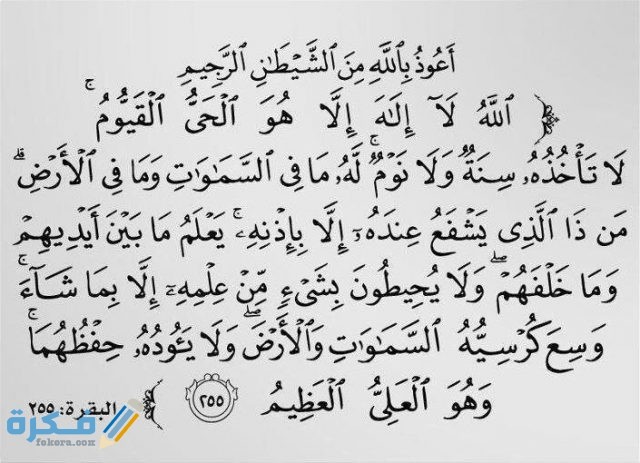 أَعُوذُ بِٱللَّهِ مِنَ ٱلشَّيْطَـٰنِ ٱلرَّجِيمِ
﴿ ٱللَّهُ لَآ إِلَـٰهَ إِلَّا هُوَ ٱلْحَىُّ ٱلْقَيُّومُ ۚ
لَا تَأْخُذُهُۥ سِنَةٌ وَلَا نَوْمٌ ۚ لَّهُۥ مَا فِى ٱلسَّمَـٰوَٰتِ وَمَا فِى ٱلْأَرْضِ ۗ
مَن ذَا ٱلَّذِى يَشْفَعُ عِندَهُۥٓ إِلَّا بِإِذْنِهِۦ ۚ يَعْلَمُ مَا بَيْنَ أَيْدِيهِمْ
وَمَا خَلْفَهُمْ ۖ وَلَا يُحِيطُونَ بِشَىْءٍ مِّنْ عِلْمِهِۦٓ إِلَّا بِمَا شَآءَ ۚ
وَسِعَ كُرْسِيُّهُ ٱلسَّمَـٰوَٰتِ وَٱلْأَرْضَ ۖ وَلَا يَـُٔودُهُۥ حِفْظُهُمَا ۚ
وَهُوَ ٱلْعَلِىُّ ٱلْعَظِيمُ ٢٥٥ ﴾ البقرة: ٢٥٥
فكرة
fekera.com